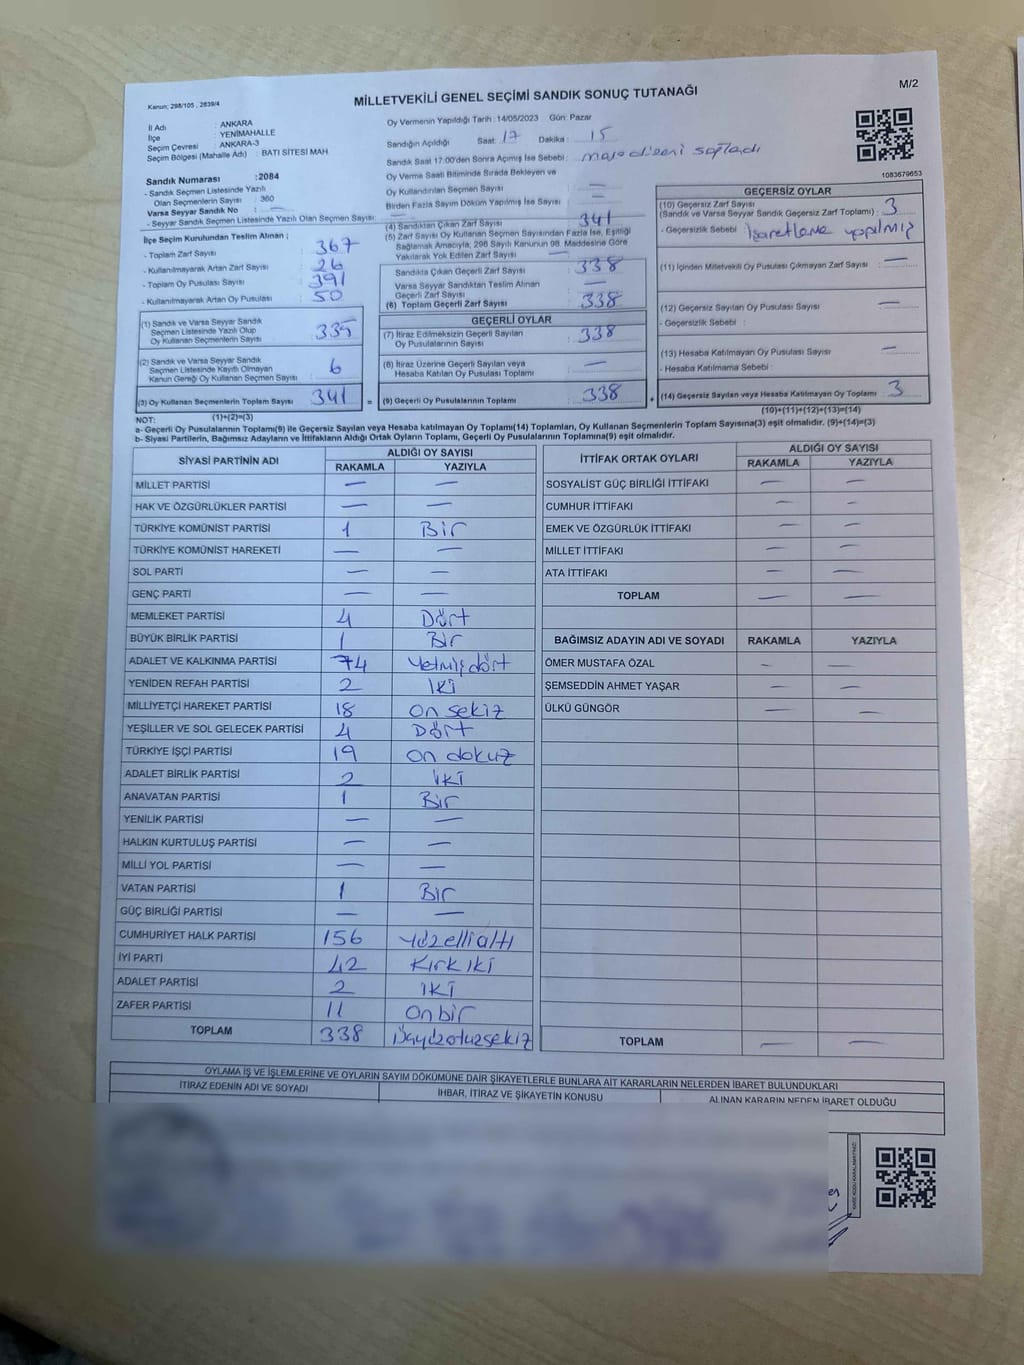 M/2
Kanun; 298/105 , 2839/4
MİLLETVEKİLİ GENEL SEÇİMİ SANDIK SONUÇ TUTANAĞI
İl Adı : ANKARA
İlçe : YENİMAHALLE
Seçim Çevresi : ANKARA-3
Seçim Bölgesi (Mahalle Adı) : BATI SİTESİ MAH
Oy Vermenin Yapıldığı Tarih : 14/05/2023 Gün: Pazar
Sandığın Açıldığı Saat: 17 Dakika : 15
Sandık Saat 17:00'den Sonra Açımış İse Sebebi :
Oy Verme Saati Bitiminde Sırada Bekleyen ve
Oy Kullandırılan Seçmen Sayısı : —
Birden Fazla Sayım Döküm Yapılmış İse Sayısı : —
1083679653
Sandık Numarası : 2084
- Sandık Seçmen Listesinde Yazılı
Olan Seçmenlerin Sayısı : 360
Varsa Seyyar Sandık No : —
- Seyyar Seçmen Listesinde Yazılı Olan Seçmen Sayısı: —
İlçe Seçim Kurulundan Teslim Alınan ;
- Toplam Zarf Sayısı : 367
- Kullanılmayarak Artan Zarf Sayısı : 26
- Toplam Oy Pusulası Sayısı : 391
- Kullanılmayarak Artan Oy Pusulası : 50
(1) Sandık ve Varsa Seyyar Sandık
Seçmen Listesinde Yazılı Olup
Oy Kullanan Seçmenlerin Sayısı : 335
(2) Sandık ve Varsa Seyyar Sandık
Seçmen Listesinde Kayıtlı Olmayan
Kanun Gereği Oy Kullanan Seçmen Sayısı : 6
(3) Oy Kullanan Seçmenlerin Toplam Sayısı : 341 =
(4) Sandıktan Çıkan Zarf Sayısı : 341
(5) Zarf Sayısı Oy Kullanan Seçmen Sayısından Fazla İse, Eşitliği
Sağlamak Amacıyla, 298 Sayılı Kanunun 98. Maddesine Göre
Yakılarak Yok Edilen Zarf Sayısı : —
Sandıkta Çıkan Geçerli Zarf Sayısı : 338
Varsa Seyyar Sandıktan Teslim Alınan
Geçerli Zarf Sayısı : —
(6) Toplam Geçerli Zarf Sayısı : 338
GEÇERLİ OYLAR
(7) İtiraz Edilmeksizin Geçerli Sayılan
Oy Pusulalarının Sayısı : 338
(8) İtiraz Üzerine Geçerli Sayılan veya
Hesaba Katılan Oy Pusulası Toplamı : —
(9) Geçerli Oy Pusulalarının Toplamı : 338 +
GEÇERSİZ OYLAR
(10) Geçersiz Zarf Sayısı
(Sandık ve Varsa Seyyar Sandık Geçersiz Zarf Toplamı) : 3
- Geçersizlik Sebebi : İşaretleme yapılmış
(11) İçinden Milletvekili Oy Pusulası Çıkmayan Zarf Sayısı : —
(12) Geçersiz Sayılan Oy Pusulası Sayısı : —
- Geçersizlik Sebebi :
(13) Hesaba Katılmayan Oy Pusulası Sayısı : —
- Hesaba Katılmama Sebebi :
(14) Geçersiz Sayılan veya Hesaba Katılmayan Oy Toplamı : 3
NOT: (1)+(2)=(3) (10)+(11)+(12)+(13)=(14)
a- Geçerli Oy Pusulalarının Toplamı(9) ile Geçersiz Sayılan veya Hesaba katılmayan Oy Toplamı(14) Toplamları, Oy Kullanan Seçmenlerin Toplam Sayısına(3) eşit olmalıdır. (9)+(14)=(3)
b- Siyasi Partilerin, Bağımsız Adayların ve İttifakların Aldığı Ortak Oyların Toplamı, Geçerli Oy Pusulalarının Toplamına(9) eşit olmalıdır.
SİYASİ PARTİNİN ADI ALDIĞI OY SAYISI
RAKAMLA YAZIYLA
MİLLET PARTİSİ — —
HAK VE ÖZGÜRLÜKLER PARTİSİ — —
TÜRKİYE KOMÜNİST PARTİSİ 1 Bir
TÜRKİYE KOMÜNİST HAREKETİ — —
SOL PARTİ — —
GENÇ PARTİ — —
MEMLEKET PARTİSİ 4 Dört
BÜYÜK BİRLİK PARTİSİ 1 Bir
ADALET VE KALKINMA PARTİSİ 74 Yetmiş dört
YENİDEN REFAH PARTİSİ 2 İki
MİLLİYETÇİ HAREKET PARTİSİ 18 on sekiz
YEŞİLLER VE SOL GELECEK PARTİSİ 4 Dört
TÜRKİYE İŞÇİ PARTİSİ 19 on dokuz
ADALET BİRLİK PARTİSİ 2 iki
ANAVATAN PARTİSİ 1 Bir
YENİLİK PARTİSİ — —
HALKIN KURTULUŞ PARTİSİ — —
MİLLİ YOL PARTİSİ — —
VATAN PARTİSİ 1 Bir
GÜÇ BİRLİĞİ PARTİSİ — —
CUMHURİYET HALK PARTİSİ 156 Yüzellialtı
İYİ PARTİ 42 Kırk iki
ADALET PARTİSİ 2 İki
ZAFER PARTİSİ 11 Onbir
TOPLAM 338 Üçyüzotuzsekiz
İTTİFAK ORTAK OYLARI ALDIĞI OY SAYISI
RAKAMLA YAZIYLA
SOSYALİST GÜÇ BİRLİĞİ İTTİFAKI — —
CUMHUR İTTİFAKI — —
EMEK VE ÖZGÜRLÜK İTTİFAKI — —
MİLLET İTTİFAKI — —
ATA İTTİFAKI — —
TOPLAM — —
BAĞIMSIZ ADAYIN ADI VE SOYADI RAKAMLA YAZIYLA
ÖMER MUSTAFA ÖZAL — —
ŞEMSEDDİN AHMET YAŞAR — —
ÜLKÜ GÜNGÖR — —
TOPLAM — —
OYLAMA İŞ VE İŞLEMLERİNE VE OYLARIN SAYIM DÖKÜMÜNE DAİR ŞİKAYETLERLE BUNLARA AİT KARARLARIN NELERDEN İBARET BULUNDUKLARI
İTİRAZ EDENİN ADI VE SOYADI İHBAR, İTİRAZ VE ŞİKAYETİN KONUSU ALINAN KARARIN NEDEN İBARET OLDUĞU